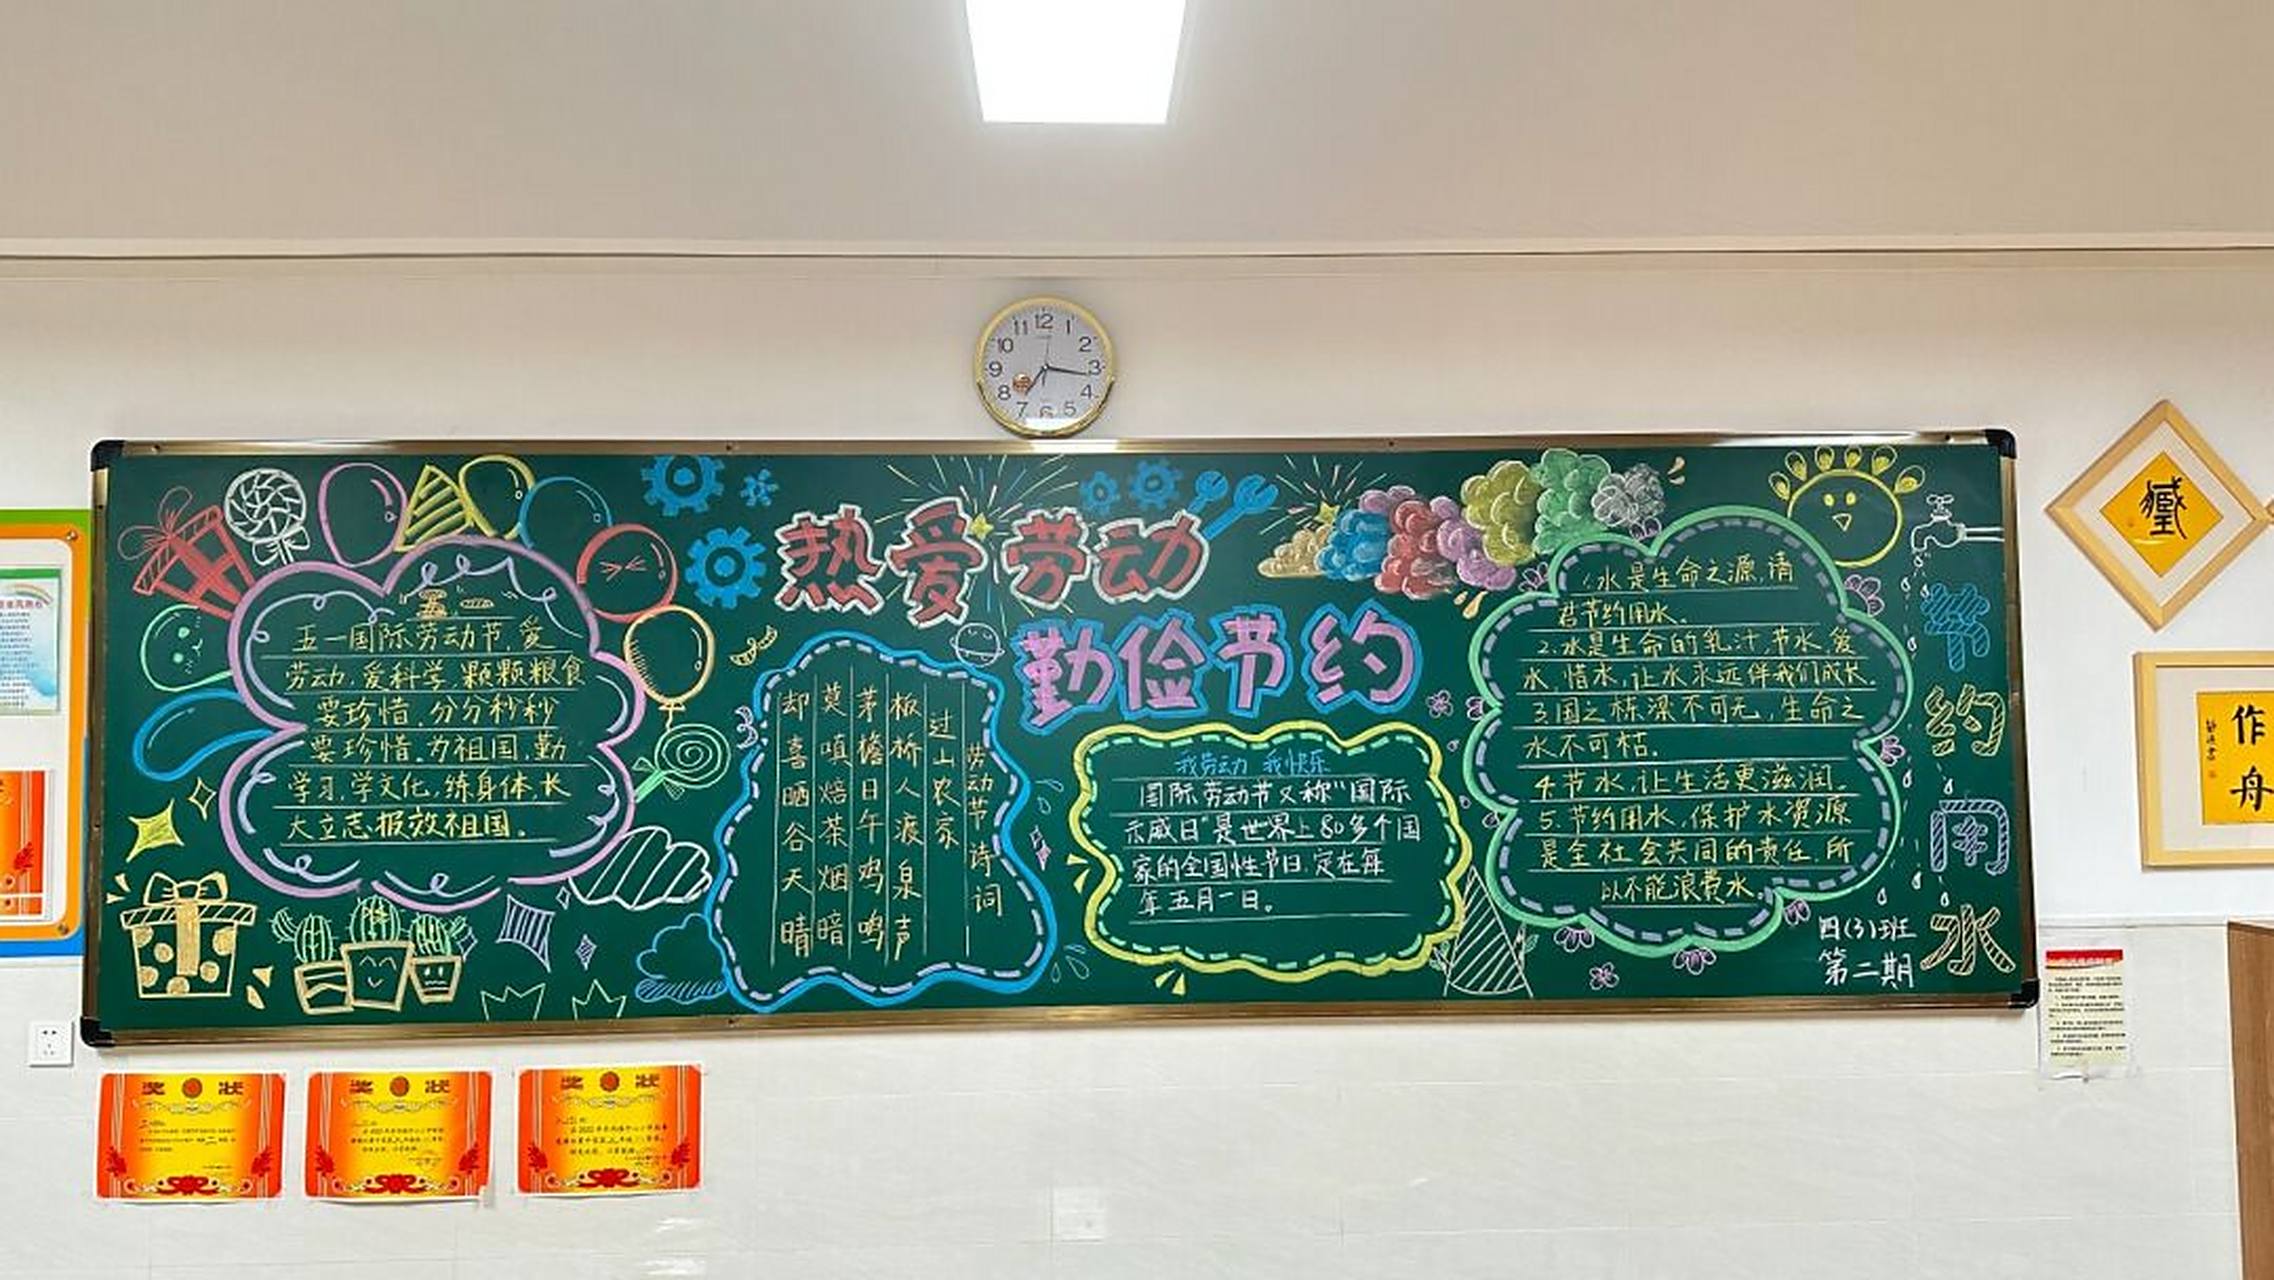 热爱劳动
勤俭节约
五一
五一国际劳动节,爱
劳动,爱科学,颗颗粮食
要珍惜.分分秒秒
要珍惜.为祖国,勤
学习,学文化,练身体,长
大立志报效祖国。
劳动节诗词
过山农家
板桥人渡泉声
茅檐日午鸡鸣
莫嗔焙茶烟暗
却喜晒谷天晴
我劳动 我快乐
国际劳动节又称“国际
示威日”是世界上80多个国
家的全国性节日,定在每
年五月一日。
1水是生命之源,请
君节约用水.
2.水是生命的乳汁,节水,爱
水,惜水,让水永远伴我们成长.
3.国之栋梁不可无,生命之
水不可枯.
4.节水,让生活更滋润。
5.节约用水,保护水资源
是全社会共同的责任,所
以不能浪费水.
节约用水
四(3)班
第二期
12
1
2
3
4
5
6
7
8
9
10
11
奖状
奖状
奖状
作舟